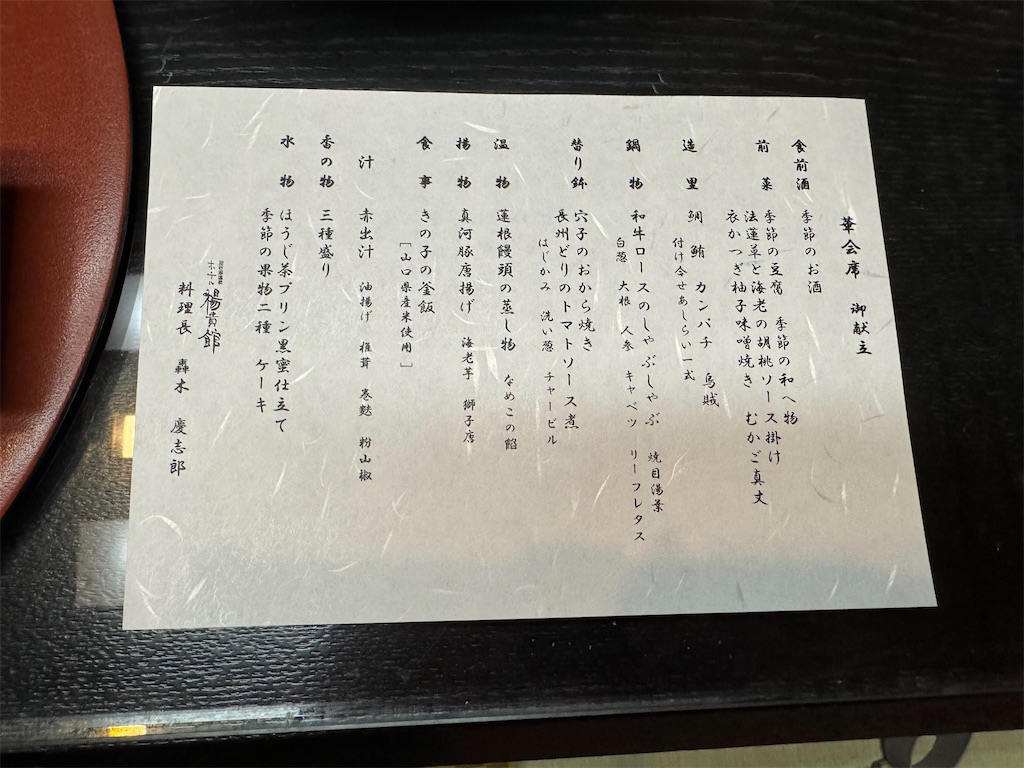 華会席　御献立
食前酒　季節のお酒
前菜　季節の豆腐　季節の和へ物
法蓮草と海老の胡桃ソース掛け
衣かつぎ柚子味噌焼き　むかご真丈
造里　鯛　鮪　カンパチ　烏賊
付け合せあしらい一式
鍋物　和牛ロースのしゃぶしゃぶ　焼目湯葉
白葱　大根　人参　キャベツ　リーフレタス
替り鉢　穴子のおから焼き
長州どりのトマトソース煮
はじかみ　洗い葱　チャービル
温物　蓮根饅頭の蒸し物　なめこの餡
揚物　真河豚唐揚げ　海老芋　獅子唐
食事　きの子の釜飯
［山口県産米使用］
汁　赤出汁　油揚げ　椎茸　巻麩　粉山椒
香の物　三種盛り
水物　ほうじ茶プリン黒蜜仕立て
季節の果物二種　ケーキ
楊貴館
料理長　轟木　慶志郎